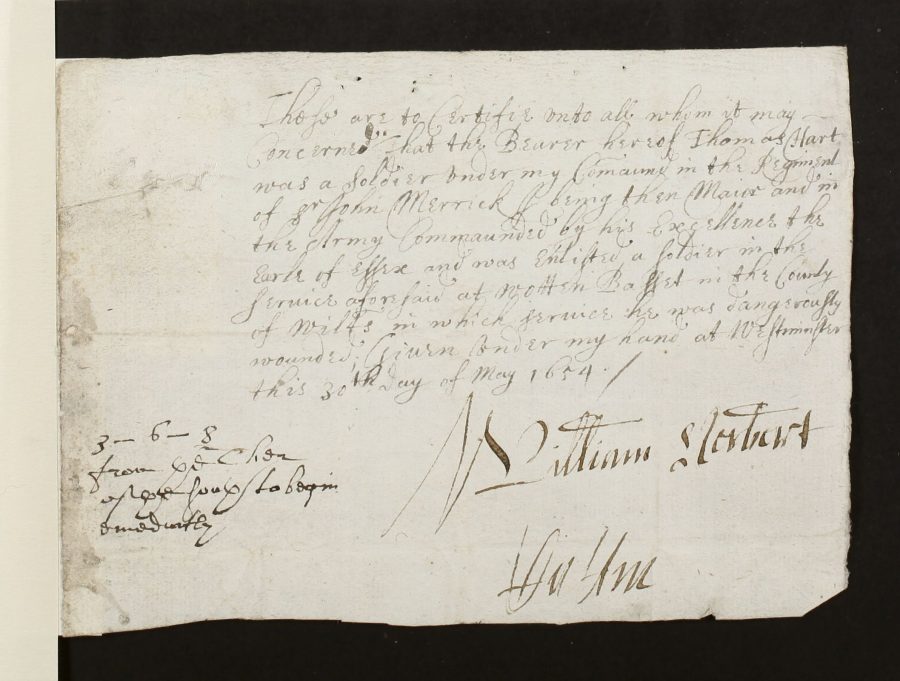 These are to Certifie unto all whom it may
Concerne That the Bearer hereof Thomas Hart
was a soldier under my Comaund in the Regiment
of Sr John Merrick being then Maior and in
the Army Commaunded by his Excellence the
Earle of Essex and was Enlisted a soldier in the
service aforesaid at Wotten Basset in the County
of Wilts in which service he was dangerously
wounded, Given under my hand at Westminster
this 30th day of May 1654.
William Herbert
3 - 6 - 8
from ye
to begin